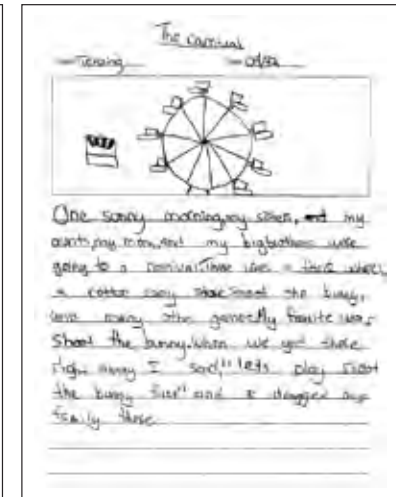 The Carnival
Tenzing
One sunny morning, my sister, and my
aunts, my mom, and my big brothers were
going to a carnival. There was a ferris wheel,
a cotton candy shoot the bunny,
and many other games. My favorite was
Shoot the bunny. When we got there
right away I said, "lets play shoot
the bunny first" and I dragged my
family there